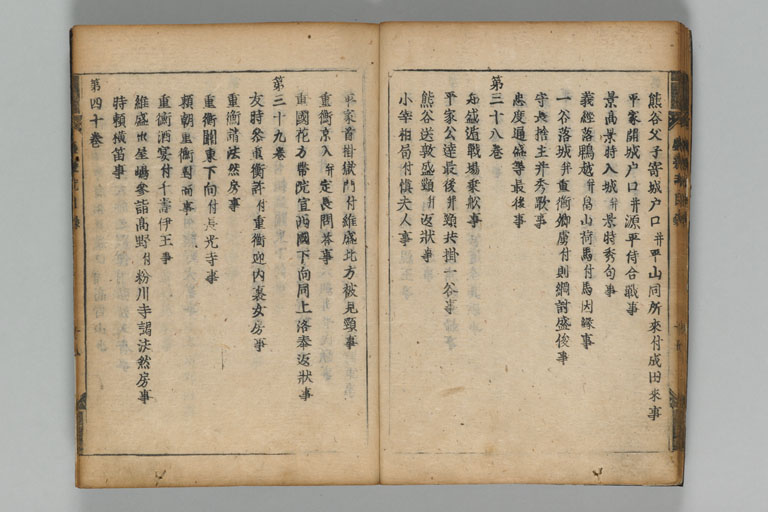 熊谷父子寄城戸口并平山同所来付成田来事
平家開城戸口并源平侍合戦事
景高景時入城并景時秀句事
義経落鵯越并畠山荷馬付馬因縁事
一谷落城并重衡卿虜付則綱討盛俊事
守長捨主并秀歌事
忠度通盛等最後事
第三十八巻
知盛遁戦場乗舩事
平家公達最後并頸共掛一谷事
熊谷送敦盛頸并返状事
小宰相局付慎夫人事
平家首掛獄門付維盛北方被見頸事
重衡京入并定長問答事
重國花方帯院宣西國下向同上洛奉返状事
第三十九巻
友時参重衡許付重衡迎内裏女房事
重衡請法然房事
重衡關東下向付長光寺事
頼朝重衡對面事
重衡酒宴付千壽伊王事
維盛出屋嶋参詣髙野付粉川寺謁法然房事
時頼横笛事
第四十巻